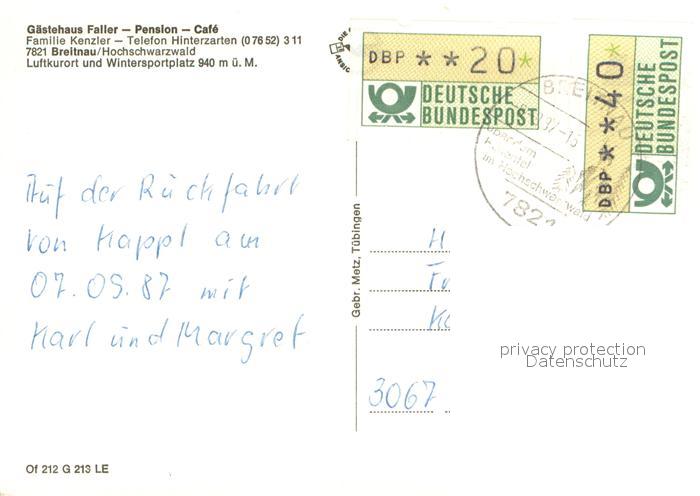 Gästehaus Faller — Pension — Café
Familie Kenzler — Telefon Hinterzarten (0 76 52) 3 11
7821 Breitnau/Hochschwarzwald
Luftkurort und Wintersportplatz 940 m ü. M.
DBP * * 20 *
DEUTSCHE
BUNDESPOST
DBP * * 40 *
DEUTSCHE
BUNDESPOST
im Hochschwarzwald
Auf der Rückfahrt
von Kappl am
07.09.87 mit
Karl und Margret
Gebr. Metz, Tübingen
H
3067
privacy protection
Datenschutz
Of 212 G 213 LE